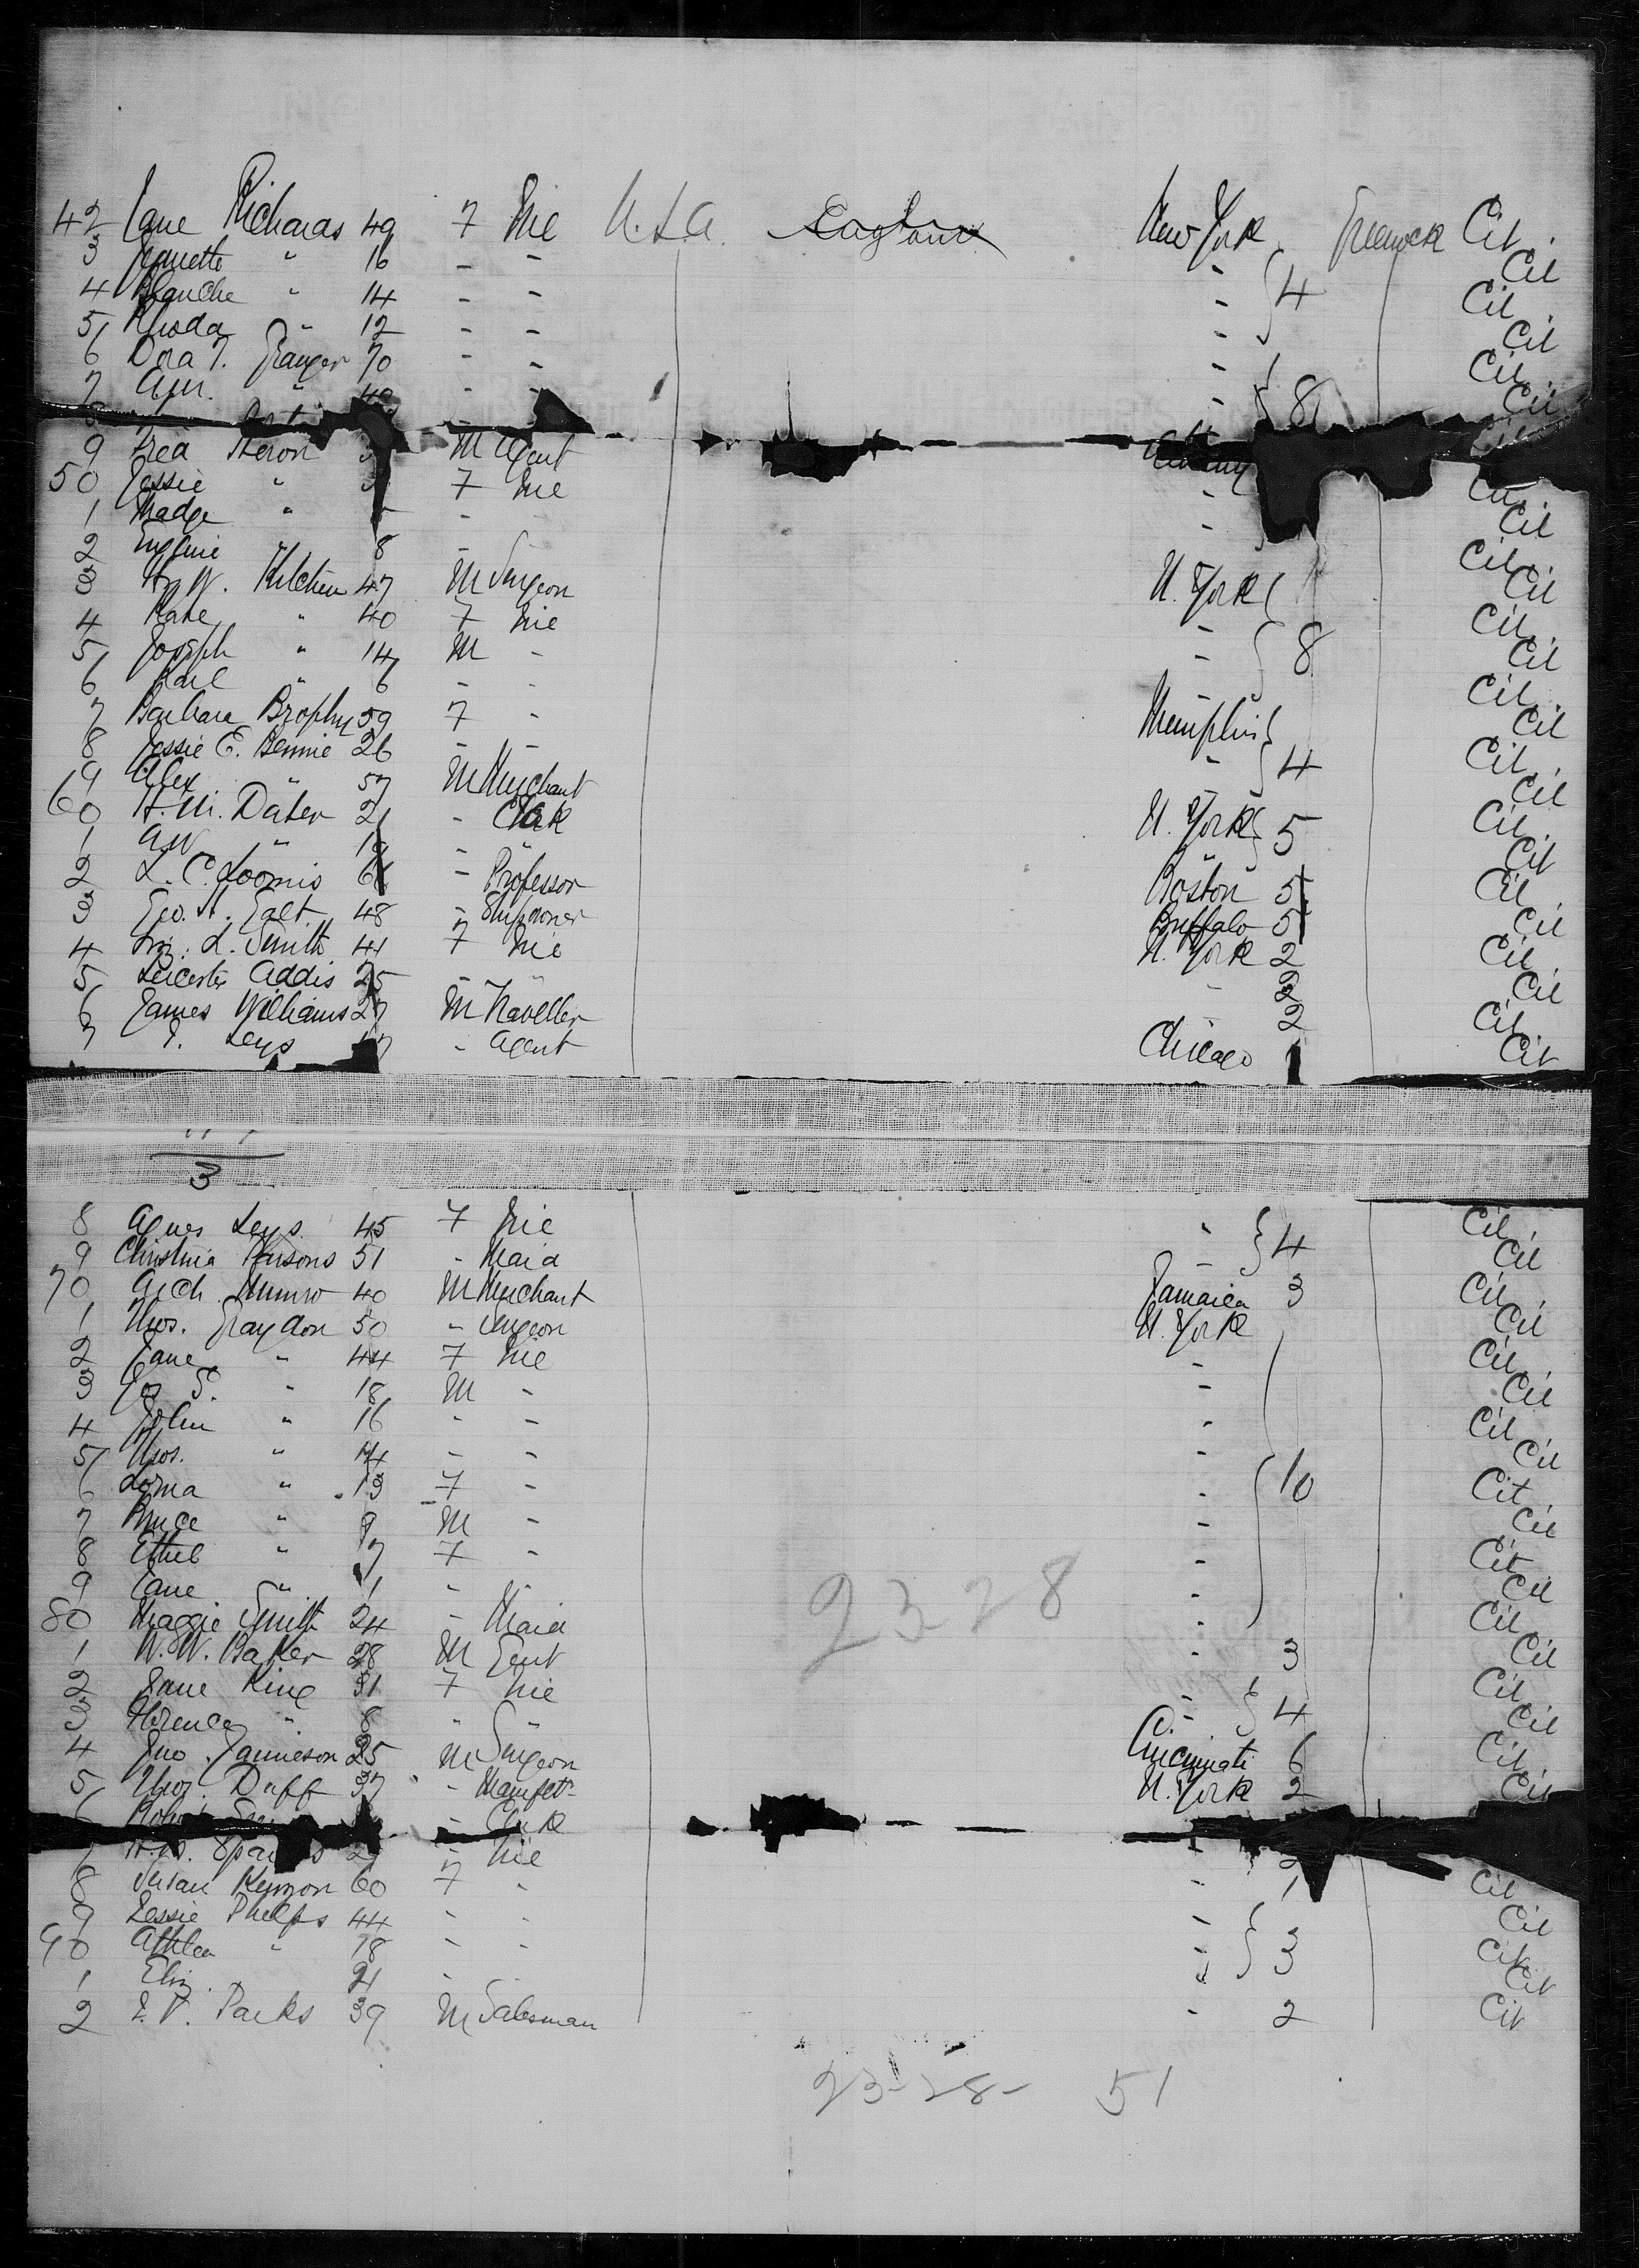 42 Jane Richards 49 F Nil U.S.A. England New York Greenock Cit.
3 Jeanette " 16 - - - Cit
4 Blanche " 14 - - - 4 Cit.
5 Rhoda " 12 - - - Cit
6 Dora T. Granger 70 - - - Cit.
7 " - - - 8 Cit
8
9 Fred Heron M Agent
50 Jessie " F Nil - Cit.
1 Madge " - - - Cit
2 " 8 - - Cit.
3 W. Kitchen 47 M Surgeon N. York Cit
4 Kate " 40 F Nil - Cit.
5 Joseph " 14 M - - 8 Cit
6 Karl " 6 - - - Cit.
7 Barbara Brophy 59 F - Memphis Cit
8 Jessie E. Bennie 26 - - - 4 Cit.
9 Alex " 57 M Merchant - Cit
60 H. M. Dater 21 - Clerk N. York 5 Cit.
1 A W " 19 - - - Cit
2 L. C. Loomis 6 - Professor Boston 5 Cit
3 Geo. H. Galt 48 - Shipowner Buffalo 5 Cit
4 L. Smith 41 F Nil N. York 2 Cit.
5 Leicester Addis 25 - - - 2 Cit
6 James Williams 27 M Traveller - 2 Cit.
7 T. Leys 47 - Agent Chicago Cit
3
8 Agnes Leys 45 F Nil - 4 Cit.
9 Christina Parsons 51 - Maid Cit
70 Arch. Munro 40 M Merchant Jamaica 3 Cit.
1 Thos. Graydon 50 - Surgeon N. York Cit
2 Jane " 44 F Nil - Cit.
3 Jos S. " 18 M - - Cit
4 John " 16 - - - Cit
5 Thos. " 14 - - - Cit
6 Lorna " 13 F - - 10 Cit.
7 Bruce " 9 M - - Cit
8 Ethel " 7 F - - Cit.
9 Jane " 1 - - - Cit
80 Maggie Smith 24 - Maid - Cit.
2328
1 W. W. Baker 28 M Gent - 3 Cit
2 Jane King 31 F Nil - Cit.
3 Florence " 8 " " - 4 Cit
4 Jno. Jamieson 25 M Surgeon Cincinnati 6 Cit.
5 Thos. Duff 37 - Manfctr N. York 2 Cit
6 Robt - Clerk
7 - Nil - 2
8 Susan Kenyon 60 F - - 1 Cit.
9 Lessie Phelps 44 - - - Cit
90 Athlea " 18 - - - 3 Cit.
1 Eliz. 21 - - - Cit
2 E. V. Parks 39 M Salesman - 2 Cit
23-28- 51